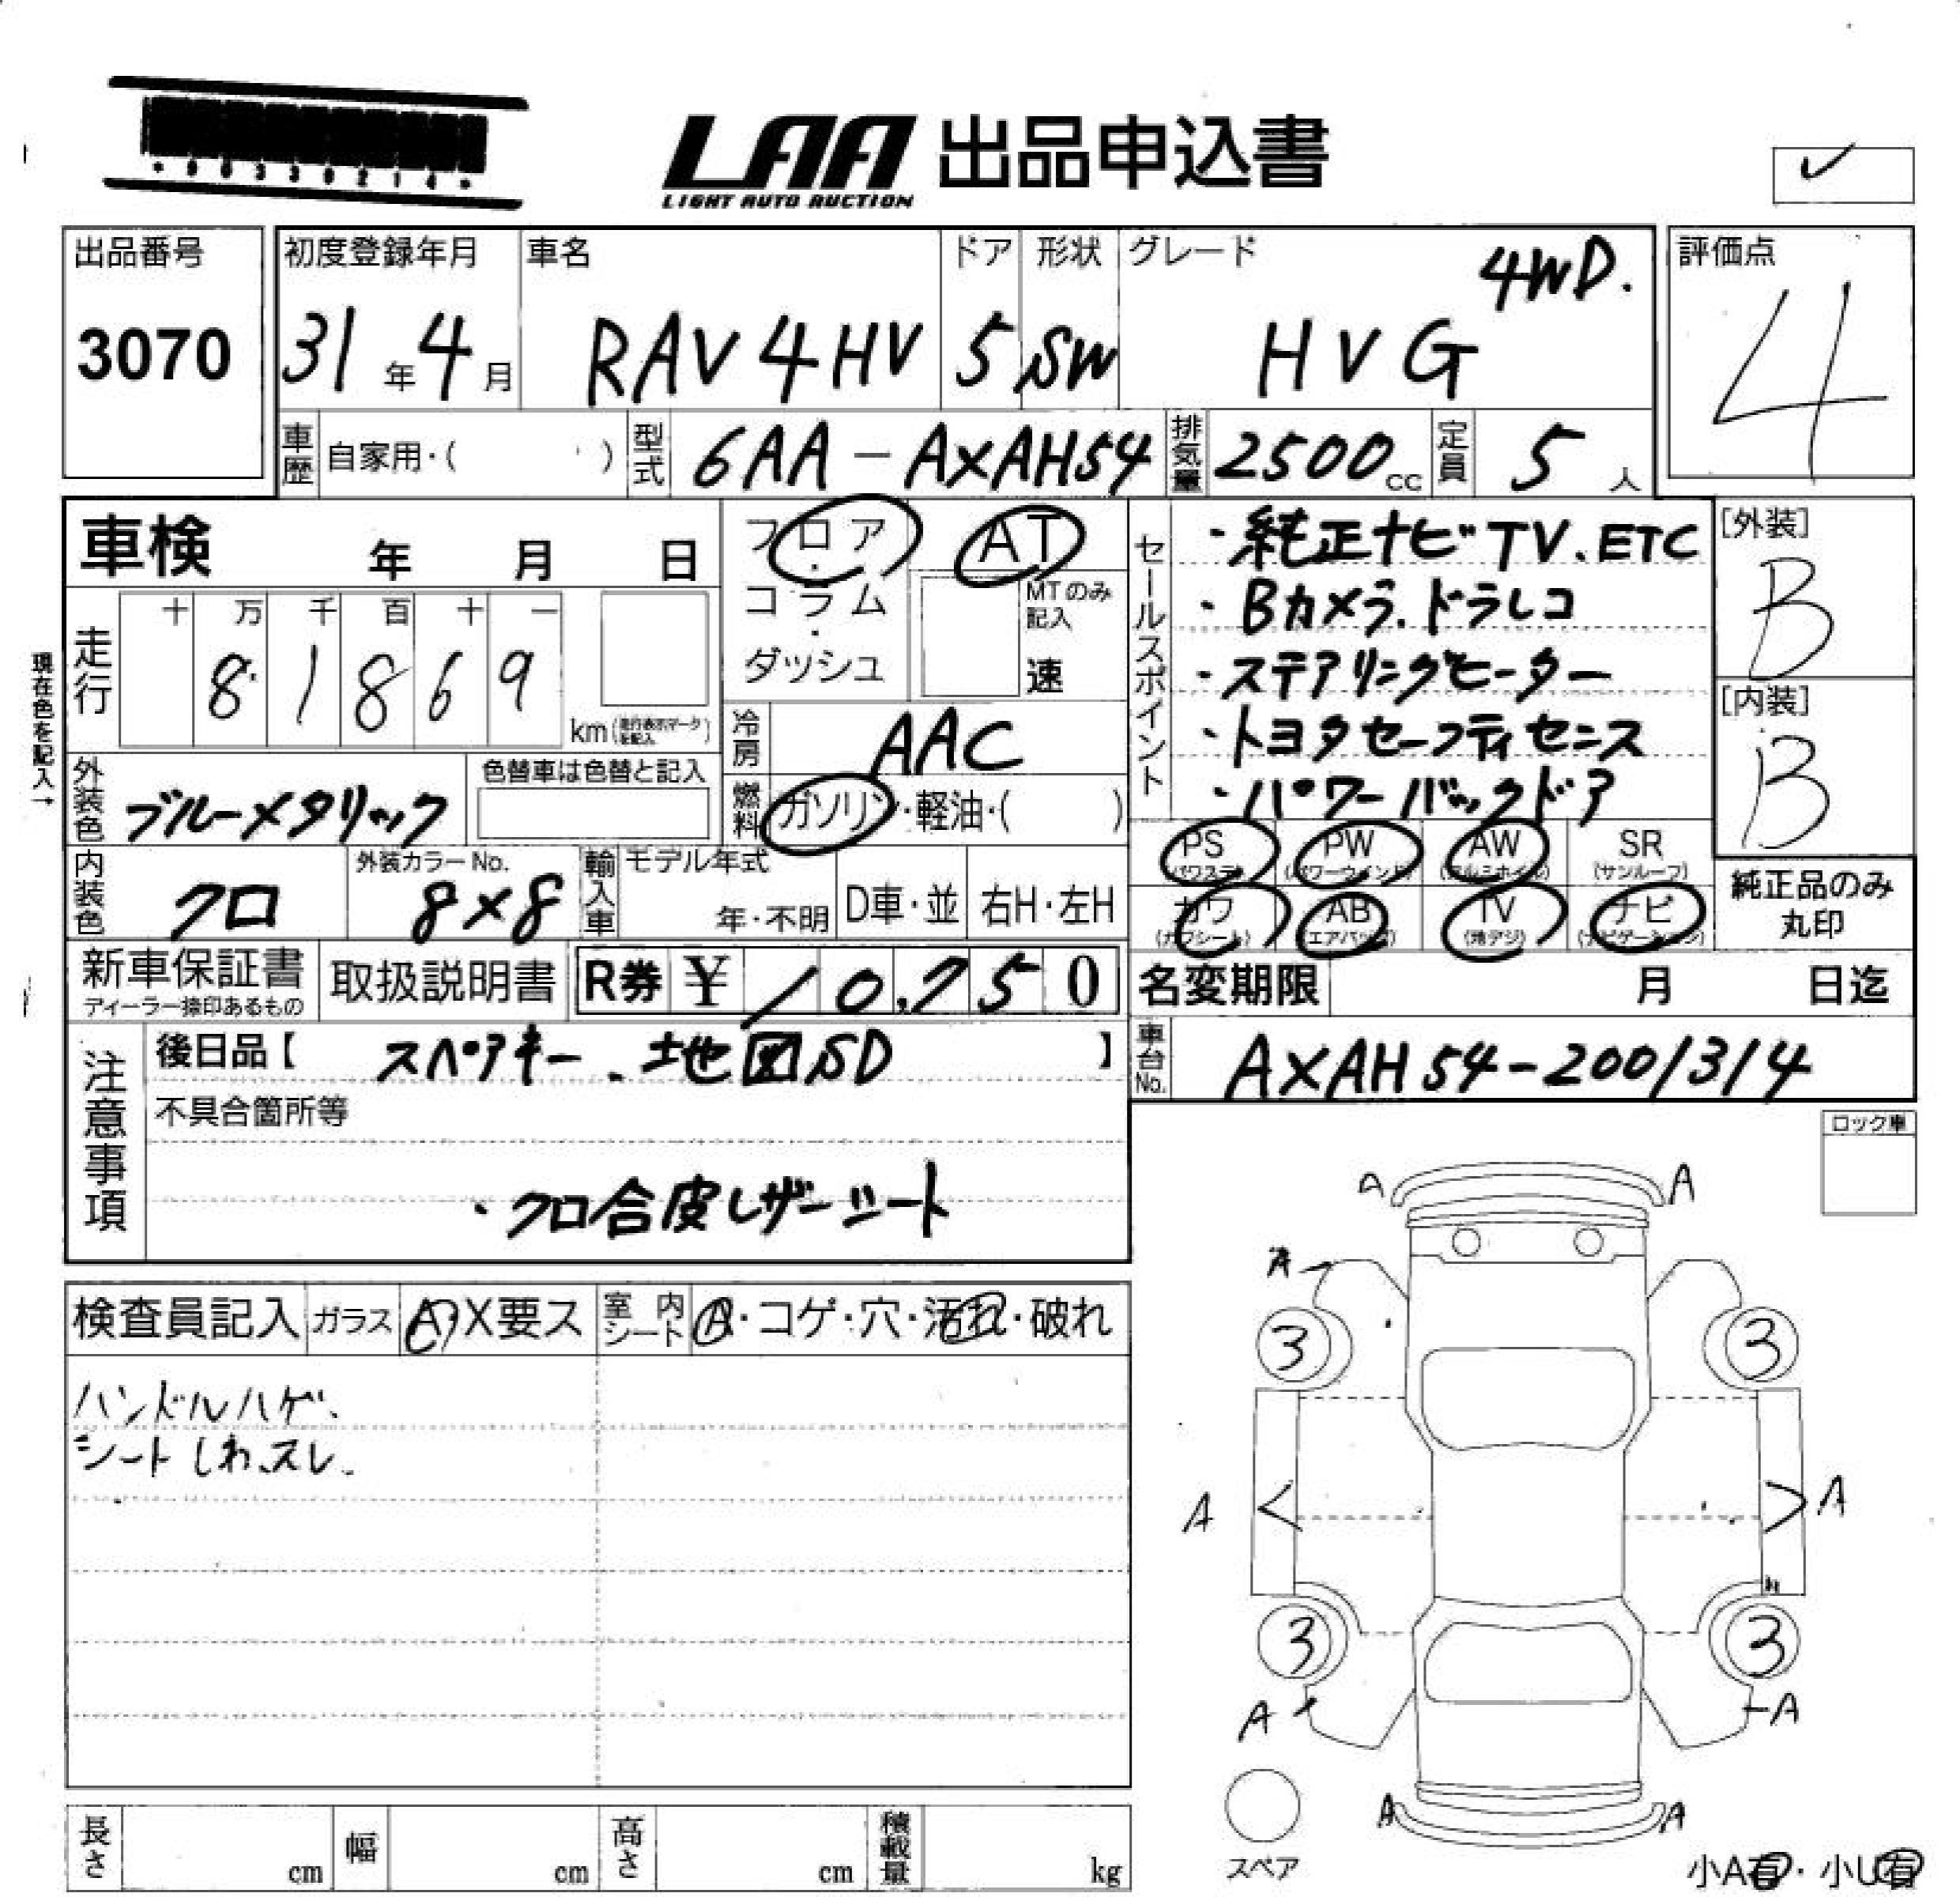 LAA 出品申込書
LIGHT AUTO AUCTION
✓
出品番号
3070
初度登録年月
31年4月
車名
RAV4HV
ドア
5
形状
SW
グレード
4WD.
HVG
評価点
4
車歴 自家用・( )
型式 6AA-AXAH54
排気量 2500cc
定員 5人
車検 年 月 日
フロア・コラム・ダッシュ
AT
MTのみ記入
速
走行
十 万 千 百 十 一
8 1 8 6 9
km
現在色を記入→
冷房 AAC
外装色 ブルーメタリック
色替車は色替と記入
燃料 ガソリン・軽油・( )
内装色 クロ
外装カラーNo.
8×8
輸入車
モデル年式
年・不明
D車・並
右H・左H
セールスポイント
・純正ナビTV、ETC
・Bカメラ、ドラレコ
・ステアリングヒーター
・トヨタセーフティセンス
・パワーバックドア
[外装]
B
[内装]
B
PS
(パワステ)
PW
(パワーウインド)
AW
(アルミホイル)
SR
(サンルーフ)
カワ
(カワシート)
AB
(エアバッグ)
TV
(地デジ)
ナビ
(ナビゲーション)
純正品のみ
丸印
新車保証書
ディーラー捺印あるもの
取扱説明書
R券 ¥ 10,750
名変期限 月 日迄
注意事項
後日品【 スペアキー、地図SD 】
不具合箇所等
・クロ合皮レザーシート
車台No. AXAH54-2001314
ロック車
検査員記入
ガラス A・X要ス
室内シート A・コゲ・穴・汚れ・破れ
ハンドルハゲ、
シートしわ、スレ、
A A
A
3 3
A A
3 3
A A
A A
スペア
小A有・小U有
長さ cm
幅 cm
高さ cm
積載量 kg